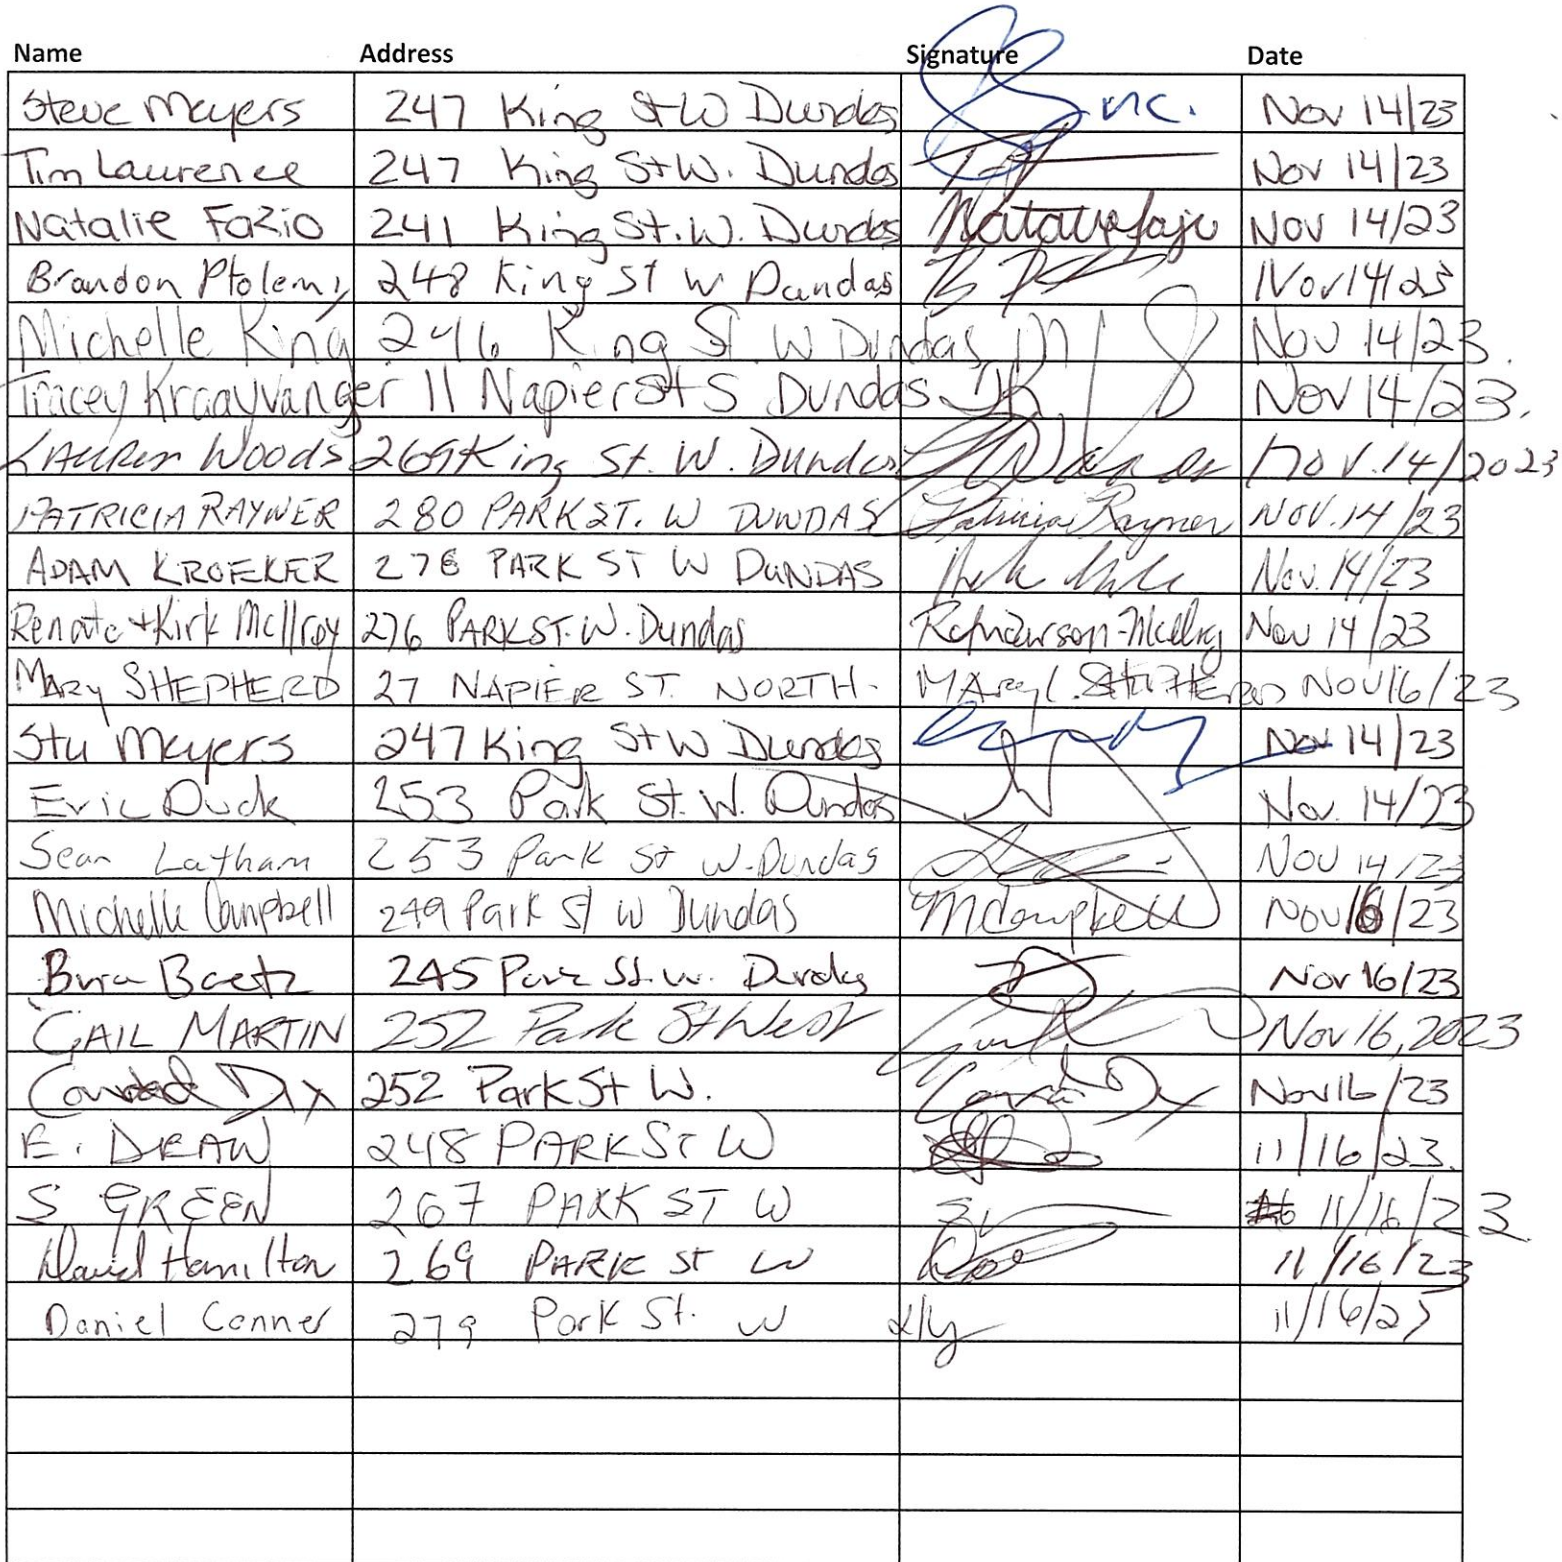 Name Address Signature Date
Steve Meyers 247 King St W Dundas Inc. Nov 14/23
Tim Laurence 247 King St W. Dundas Nov 14/23
Natalie Fazio 241 King St. W. Dundas Nov 14/23
Brandon Ptolemy 248 King St W Dundas Nov 14/23
Michelle King 246 King St W Dundas Nov 14/23.
Tracey Kraayvanger 11 Napier St S Dundas Nov 14/23.
Lauren Woods 269 King St. W. Dundas Nov. 14/2023
PATRICIA RAYNER 280 PARK ST. W DUNDAS Patricia Rayner NOV. 14/23
ADAM KROEKER 276 PARK ST W DUNDAS Nov. 14/23
Renate + Kirk McIlroy 276 PARK ST. W. Dundas Nov 14/23
MARY SHEPHERD 27 NAPIER ST. NORTH. MARY L. SHEPHERD NOV 16/23
Stu Meyers 247 King St W Dundas Nov 14/23
Eric Duck 253 Park St. W. Dundas Nov. 14/23
Sean Latham 253 Park St W. Dundas Nov 14/23
Michelle Campbell 249 Park St W Dundas MCampbell Nov 16/23
Baetz 245 Park St. W. Dundas Nov 16/23
GAIL MARTIN 252 Park St West Nov 16, 2023
Conrad Dix 252 Park St W. Conrad Dix Nov 16/23
E. DEAN 248 PARK ST W 11/16/23.
S GREEN 267 PARK ST W 11/16/23
David Hamilton 269 PARK St W 11/16/23
Daniel Conner 279 Park St. W 11/16/23